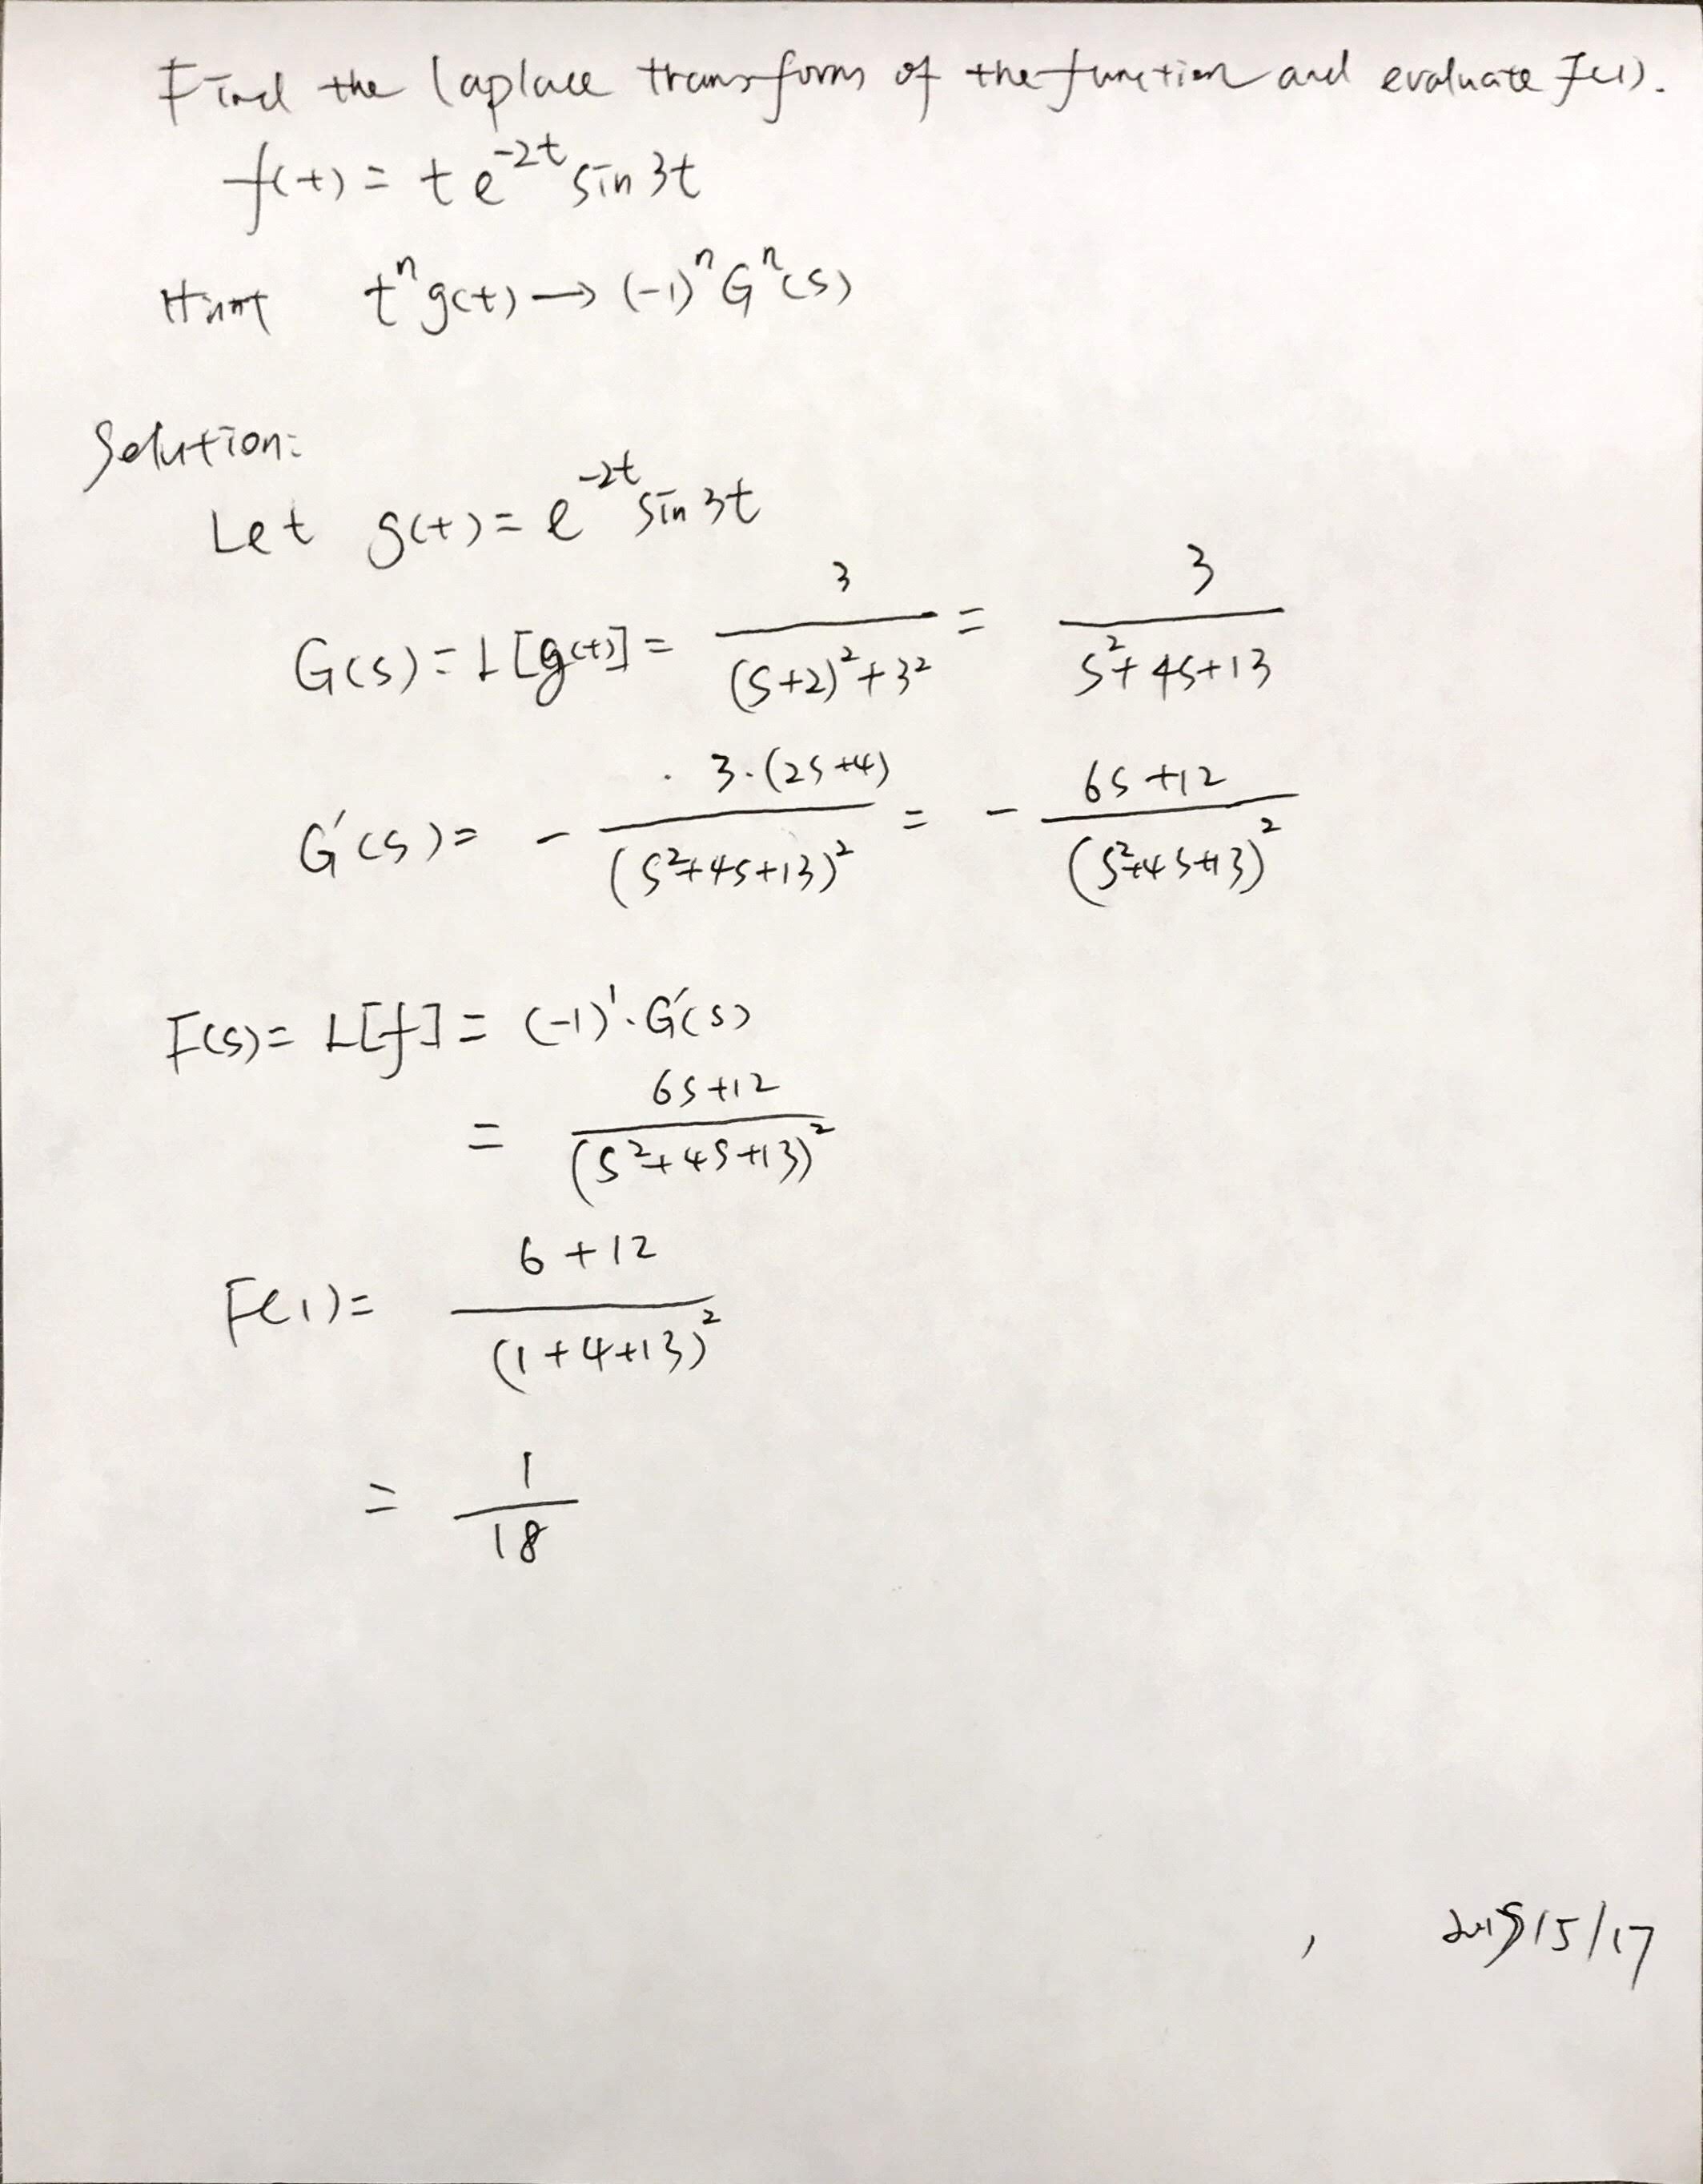 Find the Laplace transform of the function and evaluate F(1).
f(t) = t e^{-2t} sin 3t
Hint t^n g(t) → (-1)^n G^n(s)
Solution:
Let g(t) = e^{-2t} sin 3t
G(s) = L[g(t)] = 3/((s+2)^2+3^2) = 3/(s^2+4s+13)
G'(s) = - 3·(2s+4)/(s^2+4s+13)^2 = - (6s+12)/(s^2+4s+13)^2
F(s) = L[f] = (-1)^1 · G'(s)
= (6s+12)/(s^2+4s+13)^2
F(1) = (6+12)/(1+4+13)^2
= 1/18